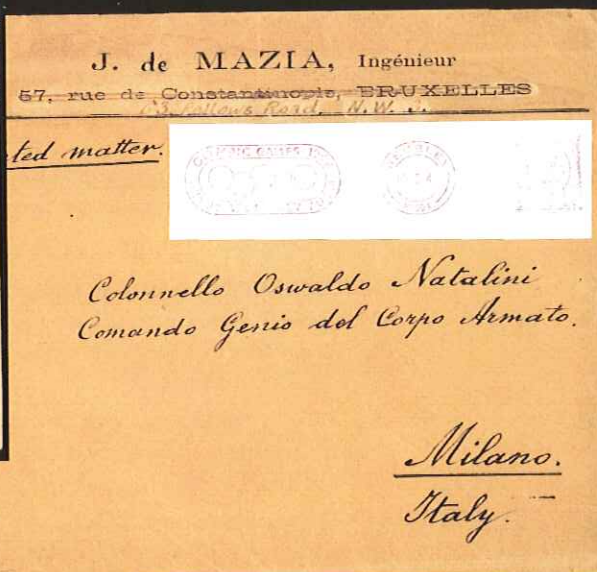 J. de MAZIA, Ingénieur
57, rue de Constantinople, BRUXELLES
Road, N.W.
ted matter.
OLYMPIC GAMES
Colonnello Oswaldo Natalini
Comando Genio del Corpo Armato.
Milano.
Italy.